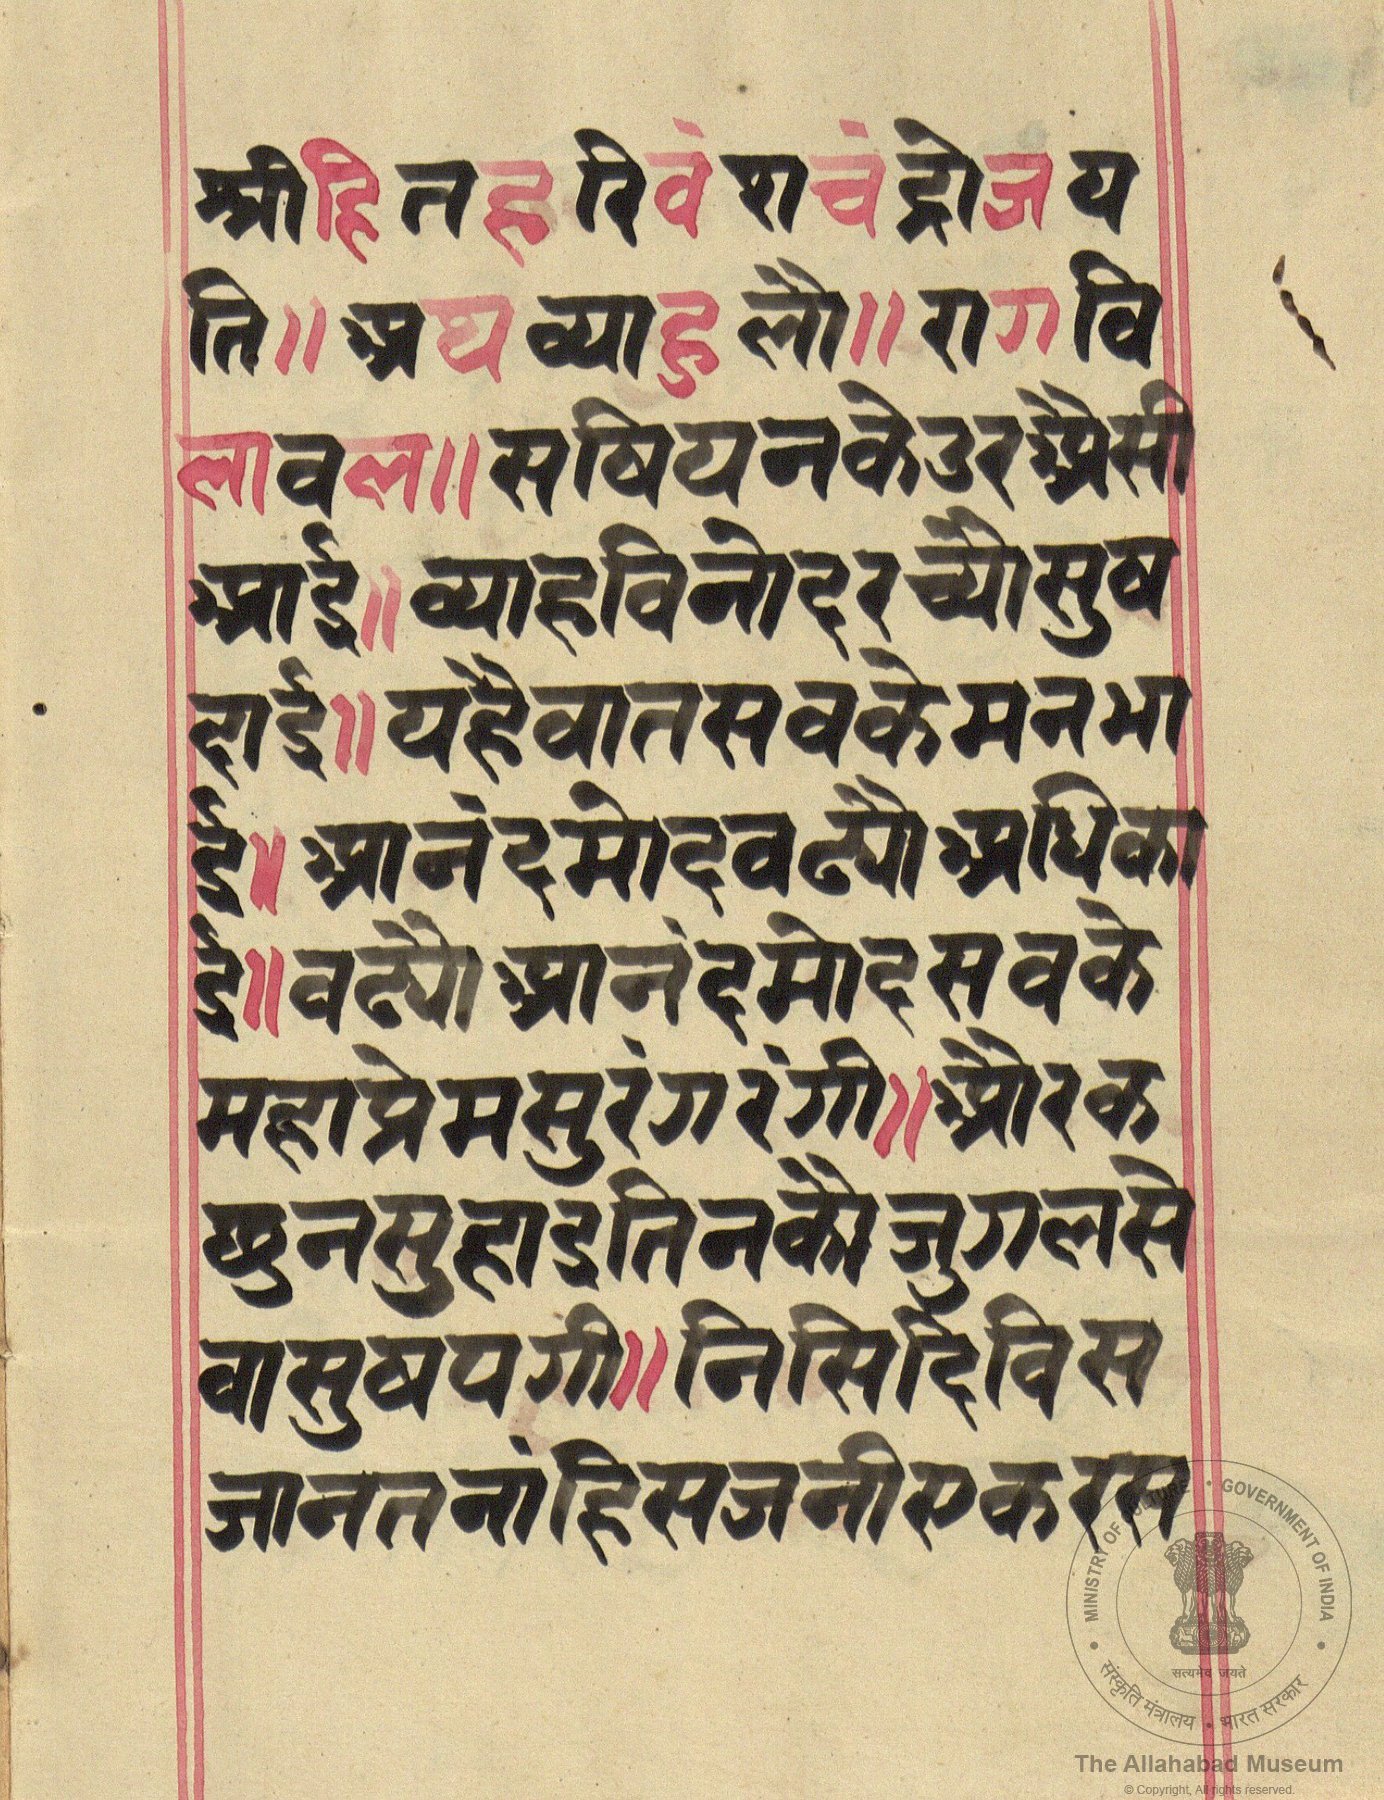 श्रीहितहरिवंशचंद्रोजय
ति॥ अथव्याहुलौ॥ रागवि
लावल॥ सषियनकेउरअैसी
आई॥ व्याहविनोदरच्यौसुष
दाई॥ यहैवातसवकेमनभा
ई॥ आनंदमोदवढ्यौअधिका
ई॥ वढ्यौआनंदमोदसवके
महाप्रेमसुरंगरंगी॥ औरक
छुनसुहाइतिनकौजुगलसे
वासुषपगी॥ निसिदिविस
जानतनांहिसजनीएकरस
MINISTRY OF CULTURE • GOVERNMENT OF INDIA
सत्यमेव जयते
संस्कृति मंत्रालय • भारत सरकार
The Allahabad Museum
© Copyright, All rights reserved.